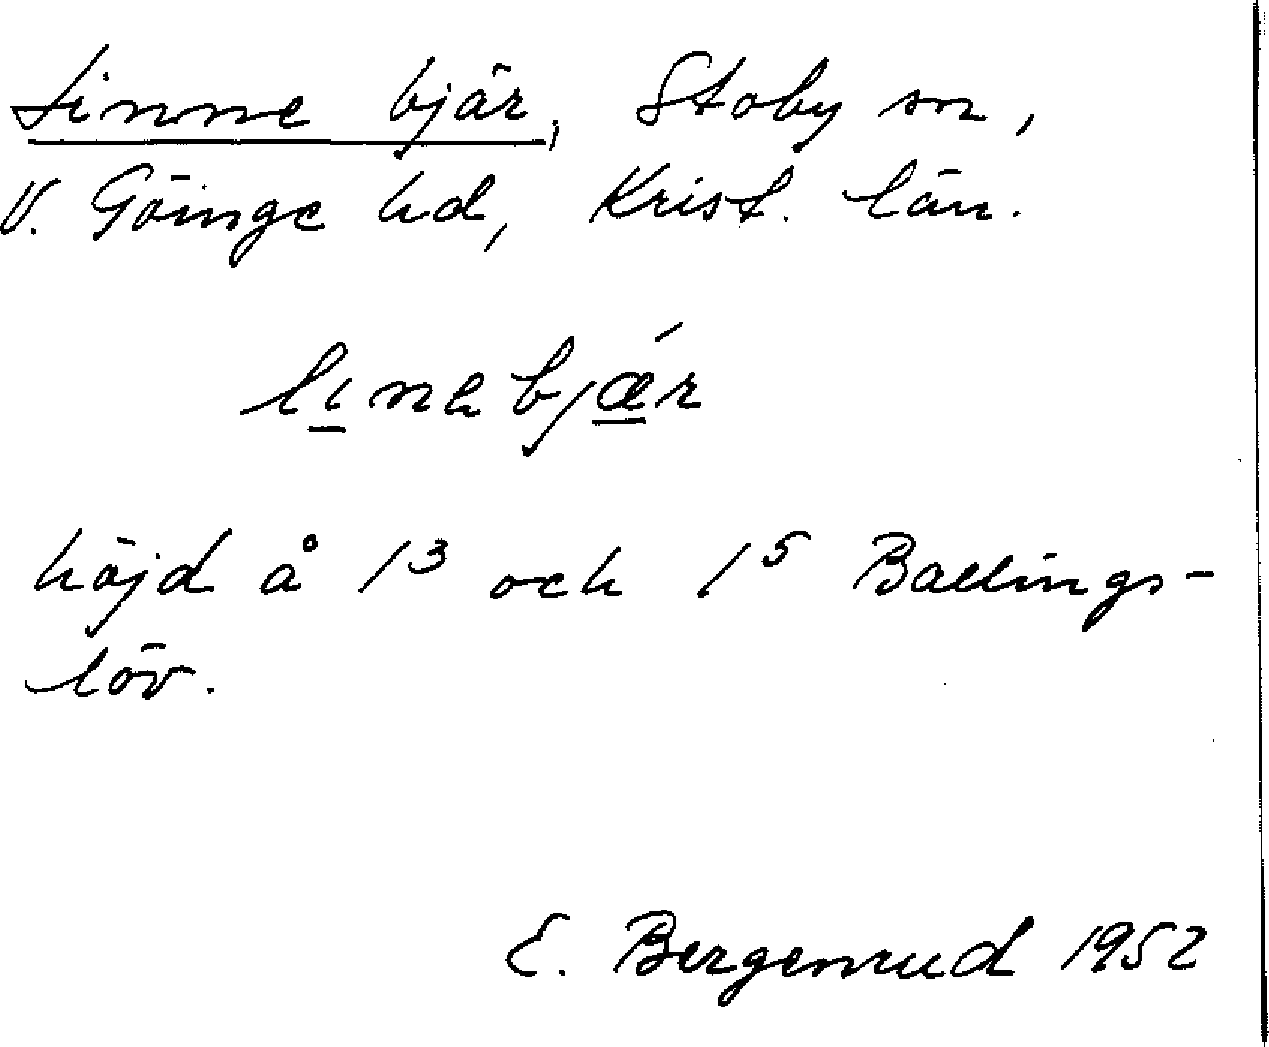 Linne bjär, Stoby sn,
V. Göinge hd, Krist. län.
lınəbjǽr
höjd å 1³ och 1⁵ Ballings-
löv.
E. Bergenrud 1952